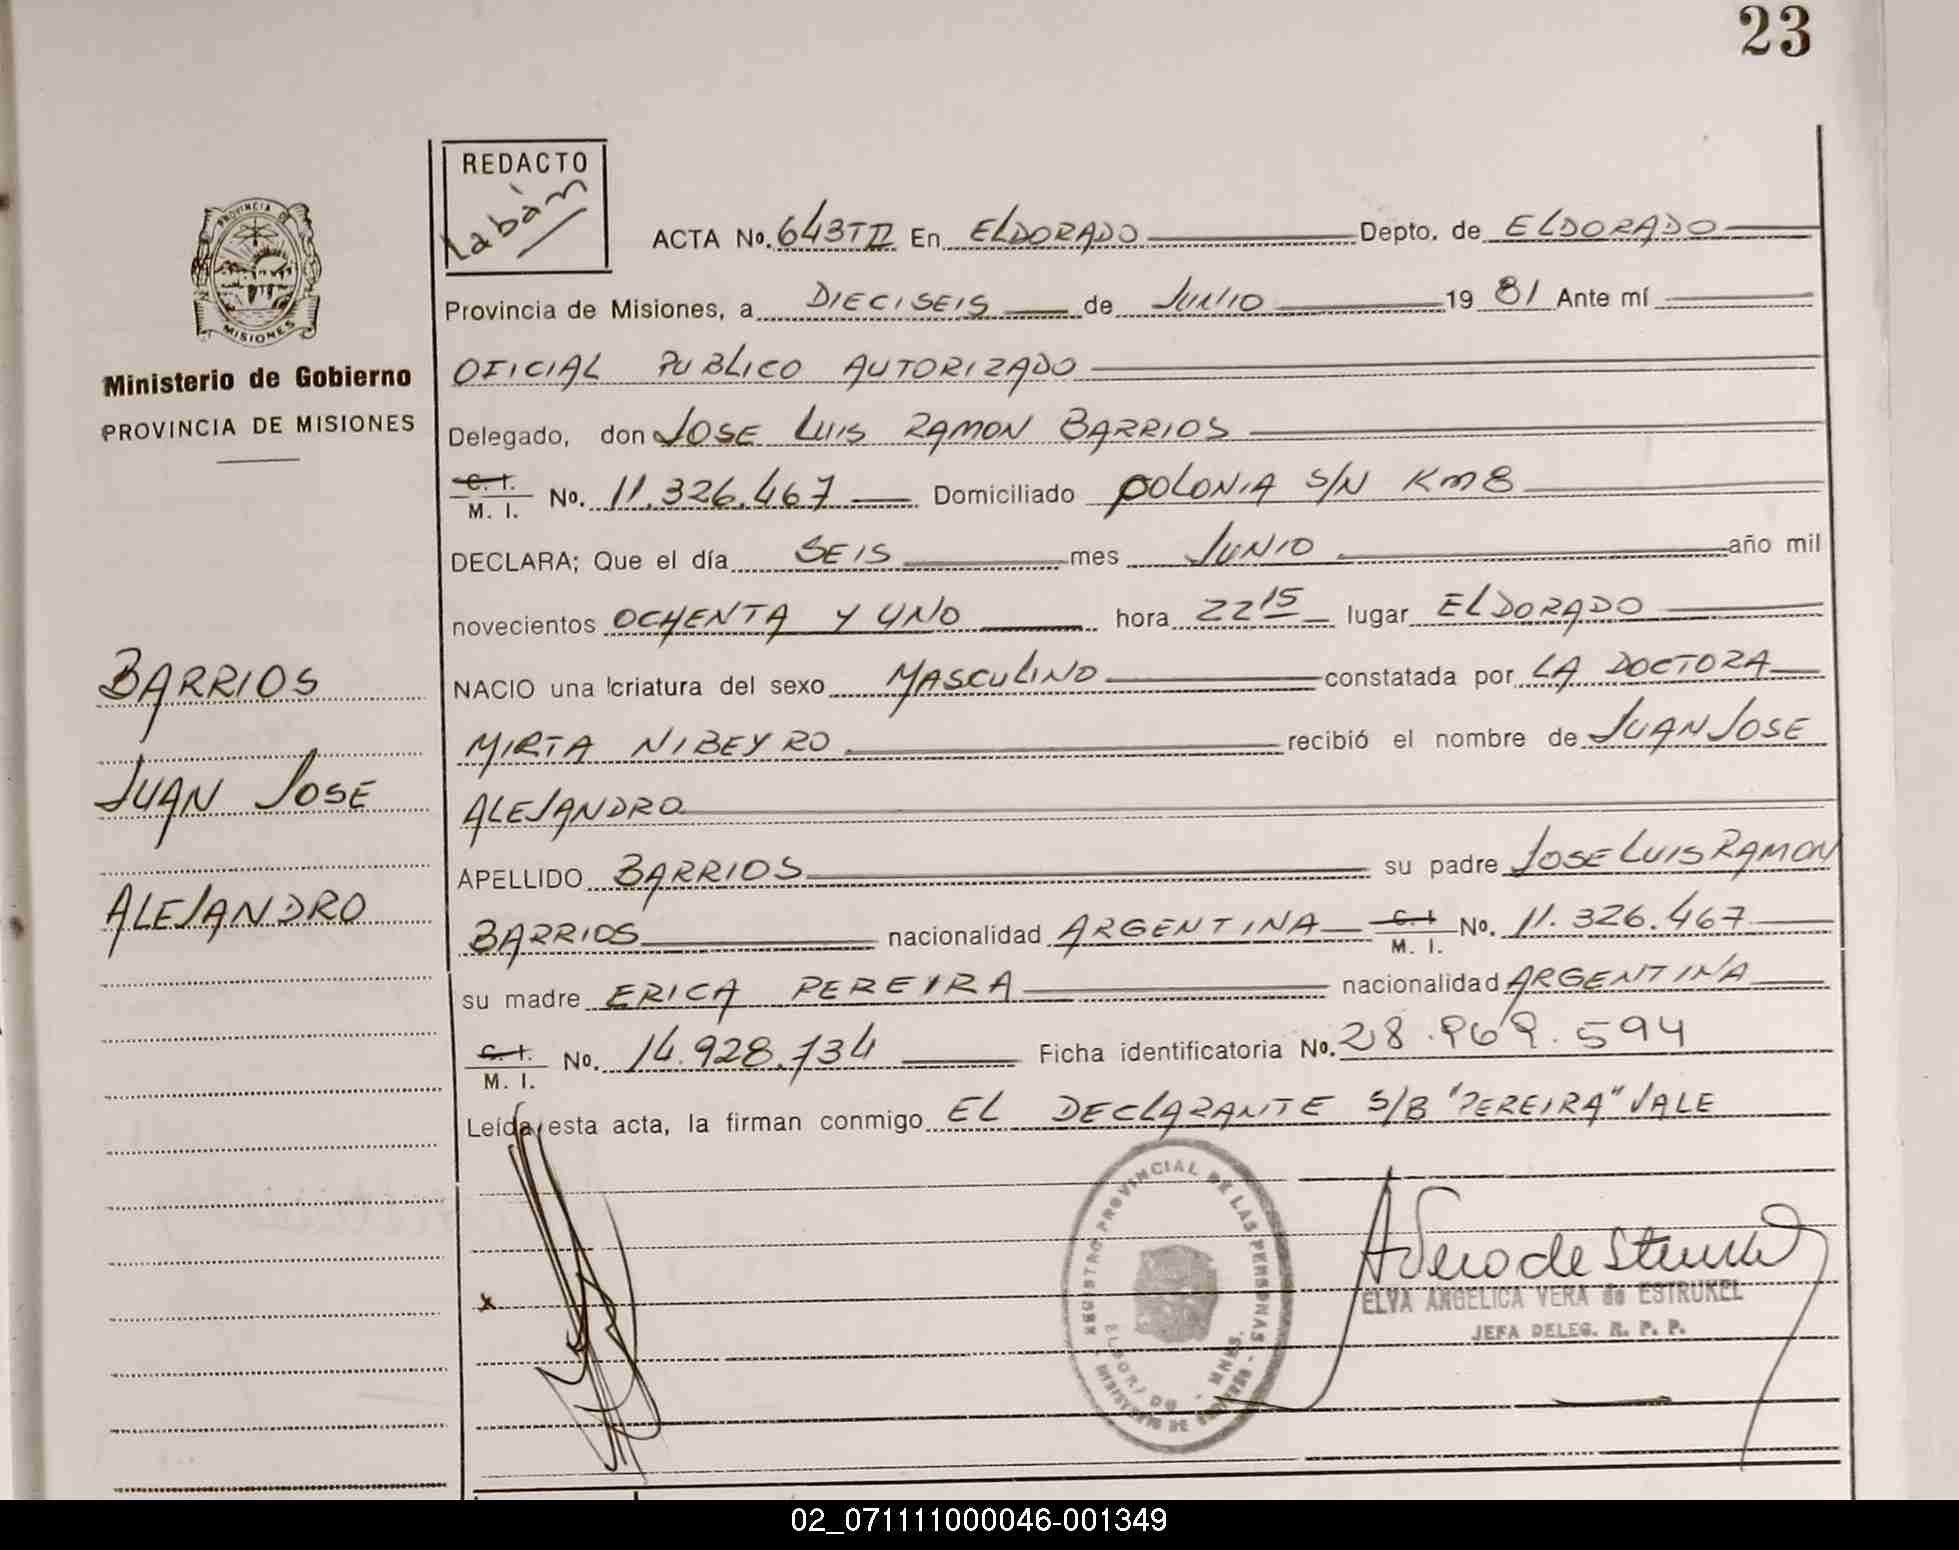 23
REDACTO
Labán
ACTA No. 643TII En ELDORADO Depto. de ELDORADO
Provincia de Misiones, a DIECISEIS de JUNIO 1981 Ante mí
OFICIAL PUBLICO AUTORIZADO
Delegado, don JOSE LUIS RAMON BARRIOS
C. I.
M. I. No. 11.326.467 Domiciliado POLONIA S/N KM8
DECLARA; Que el día SEIS mes JUNIO año mil
novecientos OCHENTA Y UNO hora 22 15 lugar ELDORADO
NACIO una criatura del sexo MASCULINO constatada por LA DOCTORA
MIRTA NIBEYRO recibió el nombre de JUAN JOSE
ALEJANDRO
APELLIDO BARRIOS su padre JOSE LUIS RAMON
BARRIOS nacionalidad ARGENTINA C. I. M. I. No. 11.326.467
su madre ERICA PEREYRA nacionalidad ARGENTINA
C. I.
M. I. No. 14.928.734 Ficha identificatoria No. 28.969.594
Leída esta acta, la firman conmigo EL DECLARANTE S/B "PEREIRA" VALE
PROVINCIA DE
MISIONES
Ministerio de Gobierno
PROVINCIA DE MISIONES
BARRIOS
JUAN JOSE
ALEJANDRO
x
REGISTRO PROVINCIAL DE LAS PERSONAS
ELDORADO
MNES.
A Vera de Estrukel
ELVA ANGELICA VERA de ESTRUKEL
JEFA DELEG. R. P. P.
02_071111000046-001349